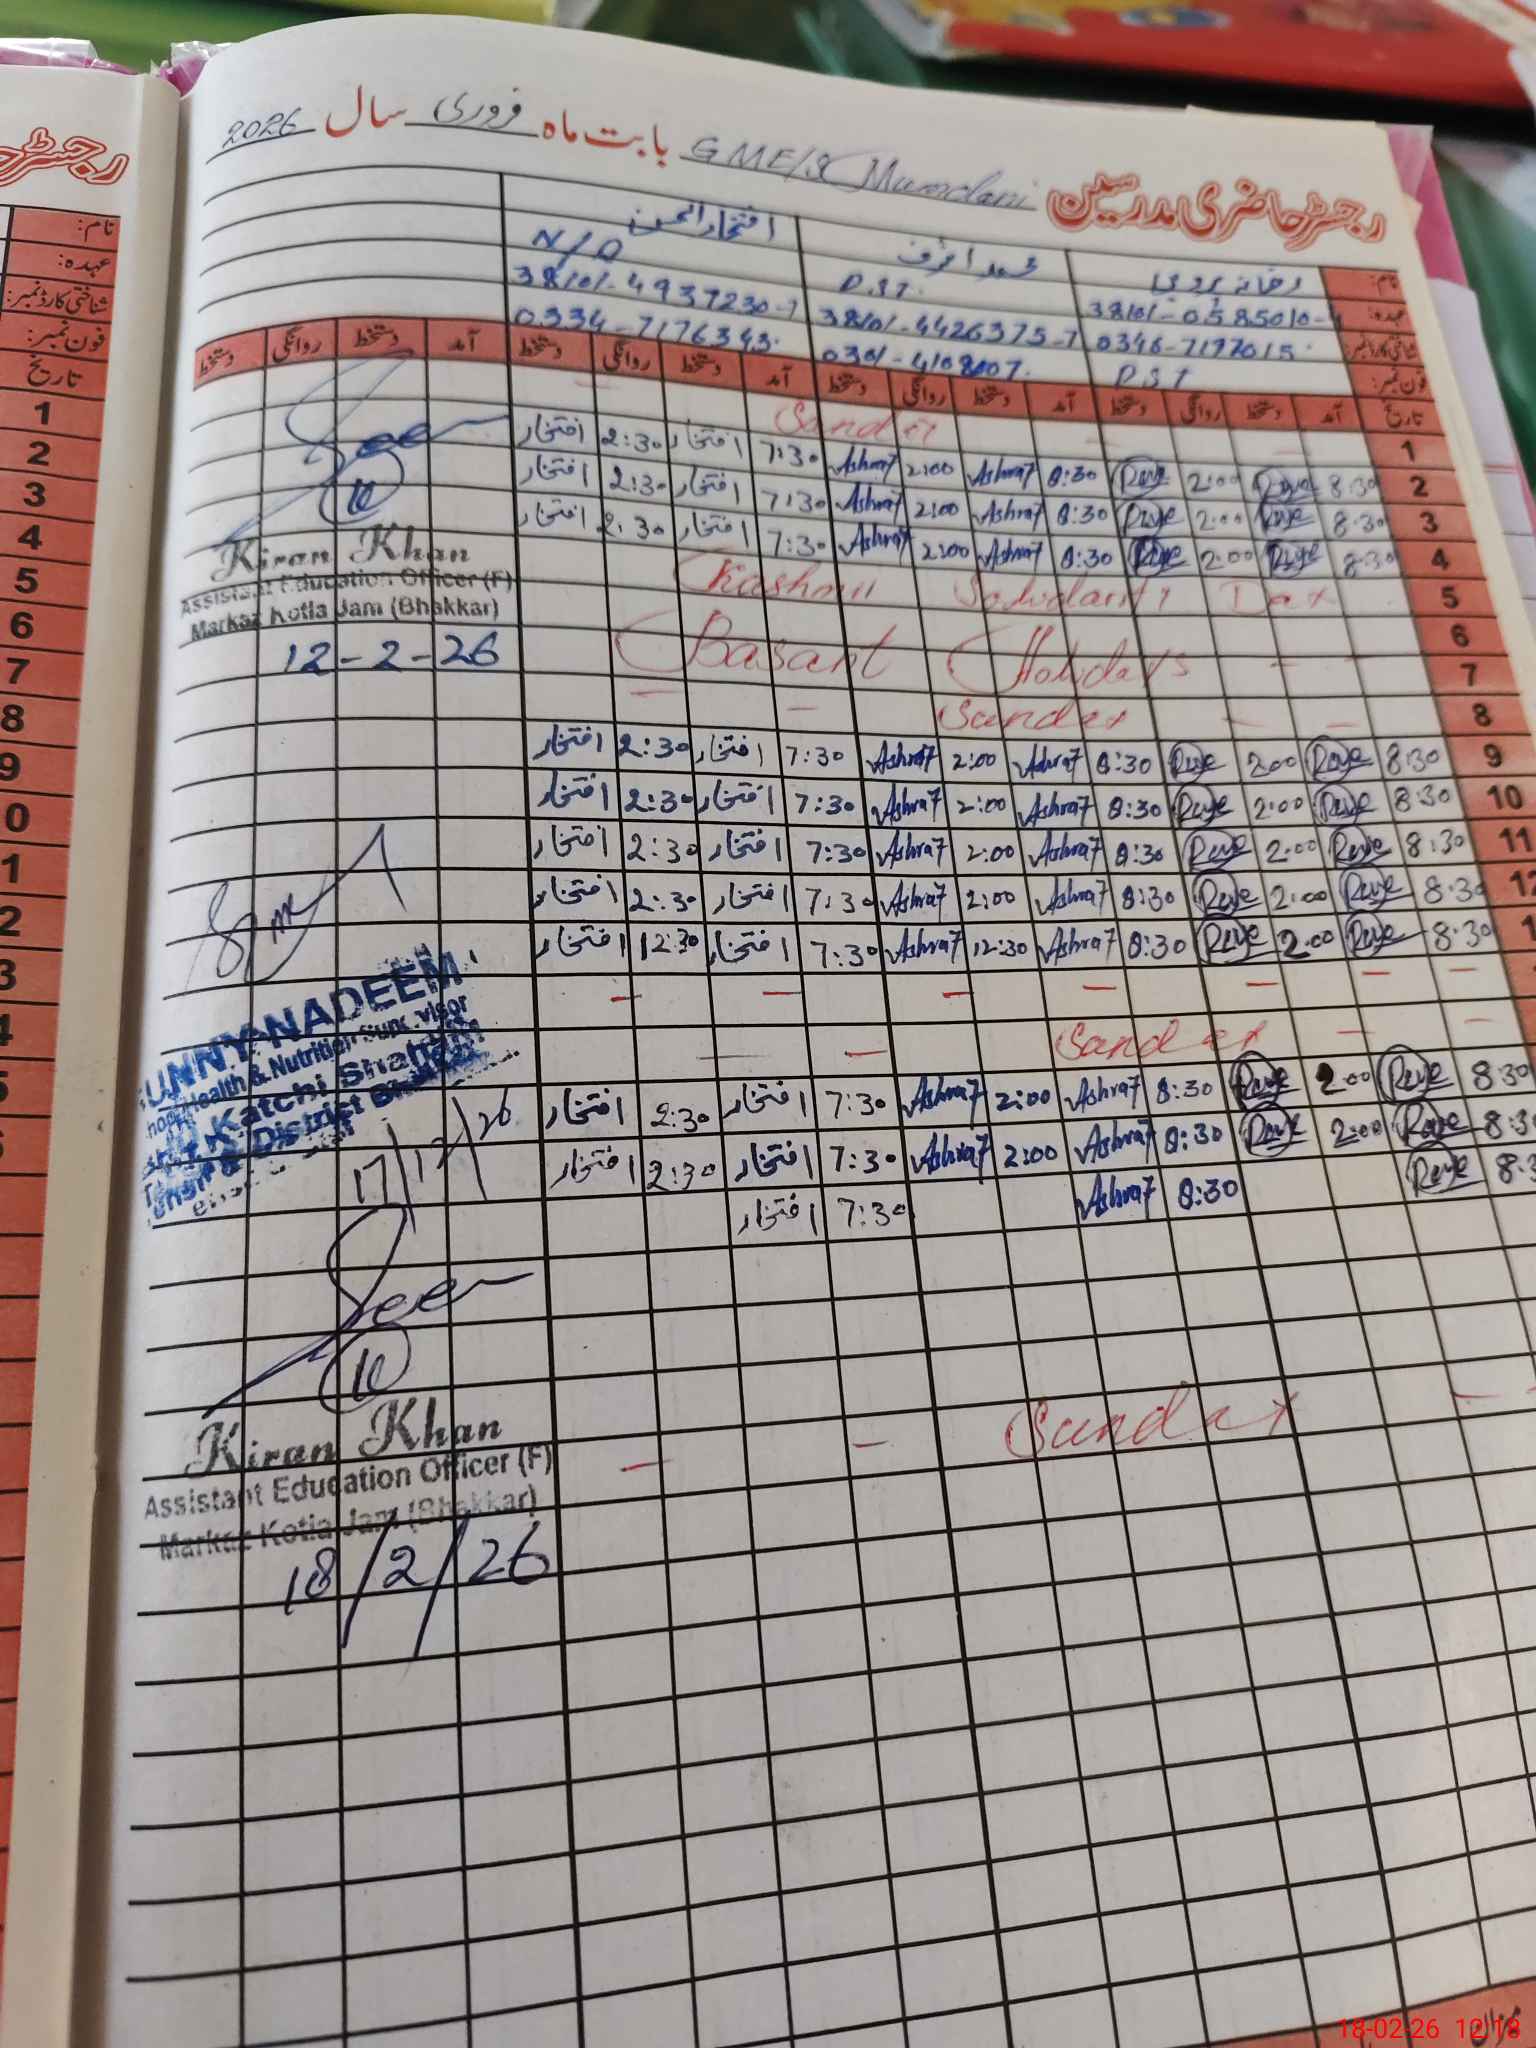 رجسٹر حاضری مدرسین GME/S Mumdani بابت ماہ فروری سال 2026
نام: محمد اشرف افتخار الحسن
عہدہ: P.S.T. N/Q
شناختی کارڈ نمبر: 38101-4426375-7 38101-4937230-7
فون نمبر: 0346-7197015 0301-4108007 0334-7176343
P.S.T
تاریخ آمد دستخط روانگی دستخط آمد دستخط روانگی دستخط آمد دستخط روانگی دستخط آمد دستخط روانگی دستخط
1 Sunday
2 8:30 2:00 8:30 Ashraf 2:00 Ashraf 7:30 افتخار 2:30 افتخار
3 8:30 2:00 8:30 Ashraf 2:00 Ashraf 7:30 افتخار 2:30 افتخار
4 8:30 2:00 8:30 Ashraf 2:00 Ashraf 7:30 افتخار 2:30 افتخار
5 Kashmir Solidarity Day
6
7 Basant Holidays
8 Sunday
9 8:30 2:00 8:30 Ashraf 2:00 Ashraf 7:30 افتخار 2:30 افتخار
10 8:30 2:00 8:30 Ashraf 2:00 Ashraf 7:30 افتخار 2:30 افتخار
11 8:30 2:00 8:30 Ashraf 2:00 Ashraf 7:30 افتخار 2:30 افتخار
12 8:30 2:00 8:30 Ashraf 2:00 Ashraf 7:30 افتخار 2:30 افتخار
1 8:30 2:00 8:30 Ashraf 12:30 Ashraf 7:30 افتخار 12:30 افتخار
Sunday
8:30 2:00 8:30 Ashraf 2:00 Ashraf 7:30 افتخار 2:30 افتخار
8:3 2:00 8:30 Ashraf 2:00 Ashraf 7:30 افتخار 2:30 افتخار
8:3 8:30 Ashraf 7:30 افتخار
Sunday
Seen
Kiran Khan
Assistant Education Officer (F)
Markaz Kotla Jam (Bhakkar)
12-2-26
UNNY NADEEM
Health & Nutrition Supervisor
Katchi Shahani
District Bhakkar
17/2/26
Seen
Kiran Khan
Assistant Education Officer (F)
Markaz Kotla Jam (Bhakkar)
18/2/26
میزان
رجسٹر
نام:
عہدہ:
شناختی کارڈ نمبر:
فون نمبر:
تاریخ
1
2
3
4
5
6
7
8
9
0
1
2
3
4
5
18-02-26 12:18